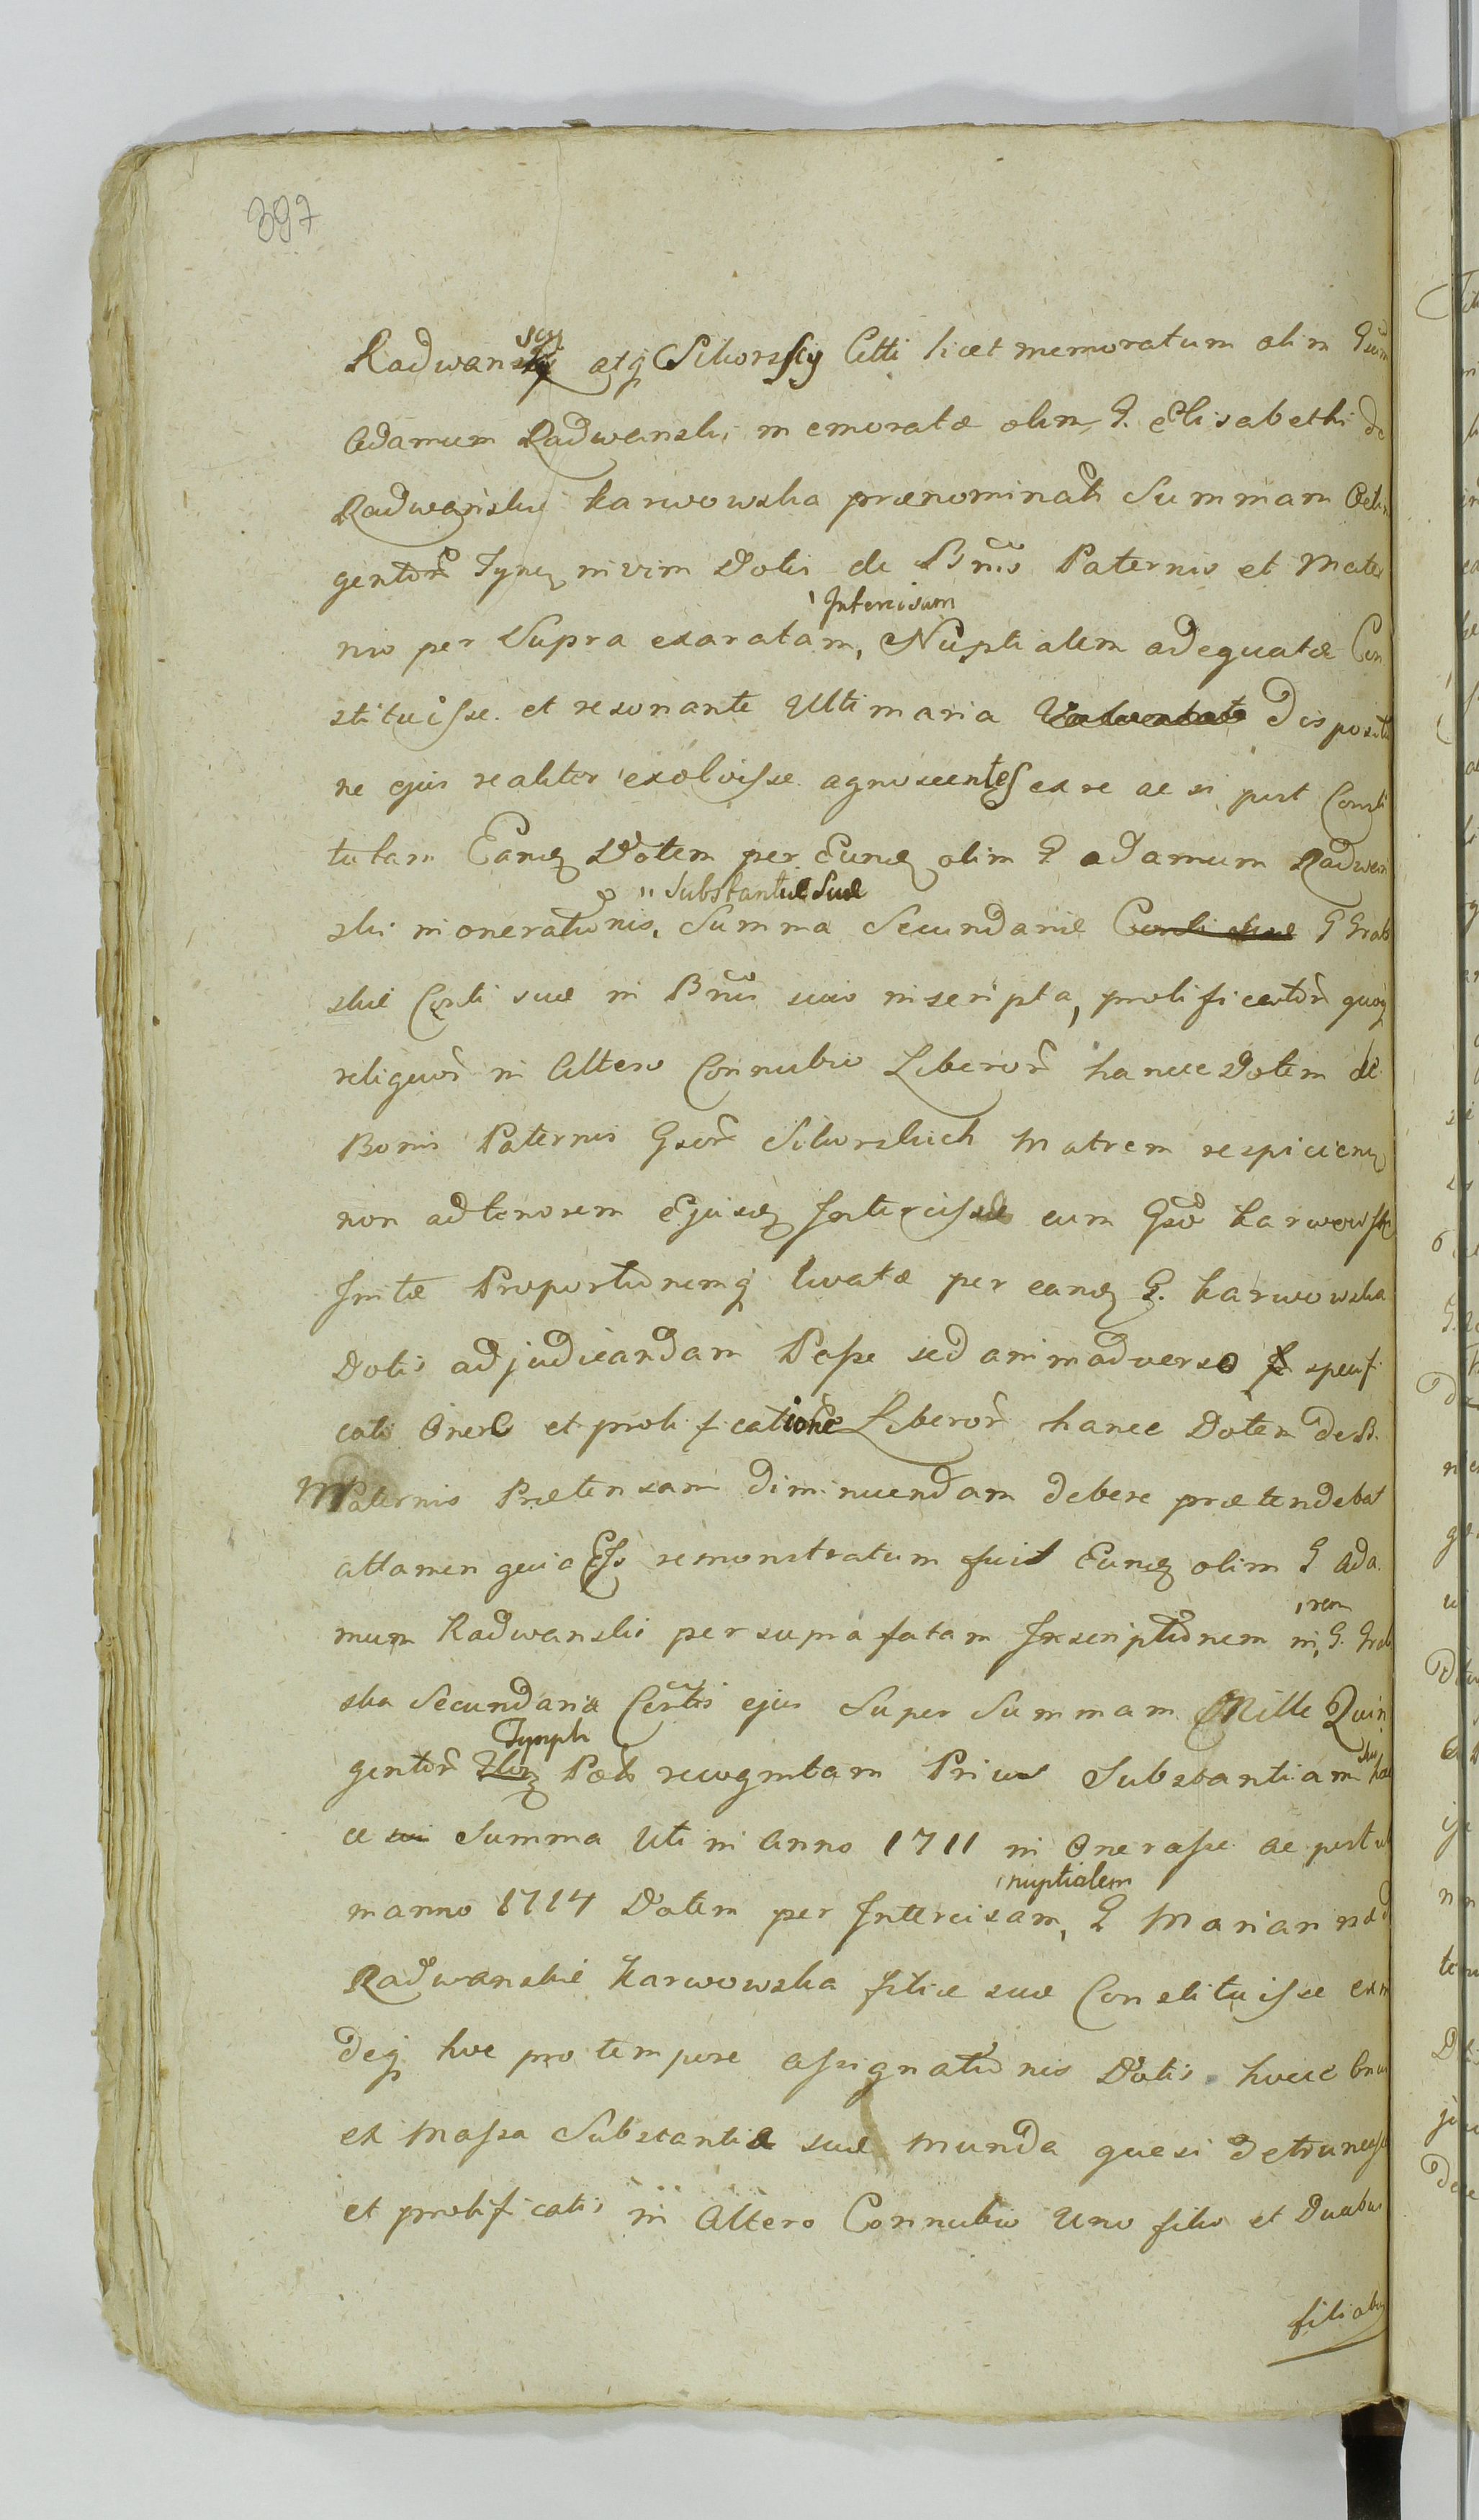 397
Radwanscy atq Sikorscy Actti licet memoratum olim Gsum
Adamum Radwanski memoratæ olim G. Elisabethi de
Radwanskie Karwowska prænominati Summam Octin
gentor Tynf in vim Dotis de Bnis Paternis et Mater
nis per Supra exaratam, Intercisam Nuptialem adequate Con
stituisse et resonante Ultimaria Dispositio
ne ejus realiter exolvisse agnoscentes ex re ac si post Consti
tutam Eandz Dotem per Eundz olim G Adamum Radwan
ski in onerationis, Substantiæ Suæ Summa Secundariæ G Grab
skie Conti suæ in Bnis suis inscripta, prolificator quoq
reliquor in Altero Connubio Liberor hancce Dotem de
Bonis Paternis Gsor Sikorskich Matrem respiciend
non ad tenorem Ejusdz Intercisæ cum Gso Karwowski
Initæ Proportionemq levatæ per eandz G. Karwowska
Dotis adjudicandam Posse sed animadverso specifi
cati Onere et prolificatione Liberor hancce Dotem de B.
MPaternis Prætensam diminuendam debere prætendebat
attamen quia Esse remonstratum fuit Eundz olim G Ada
mum Radwanski per supra fatam Inscriptionem in, rem G. Grab
ska Secundaria Contis ejus Super Summam Mille Quin
gentor Tymph Poo recognitam Prius Substantiam suam hac
ce Summa Uti in Anno 1711 in Onerasse ac post ut
in anno 1714 Dotem per Intercisam, nuptialem G Mariannæ d
Radwanskie Karwowska filiæ suæ Constituisse exin
deq hoc pro tempore assignationis Dotis hucce
ex Massa Substantiæ suæ munda quasi Detruncasse
et prolificatis in Altero Connubio Uno filio et Duabus
filiabus